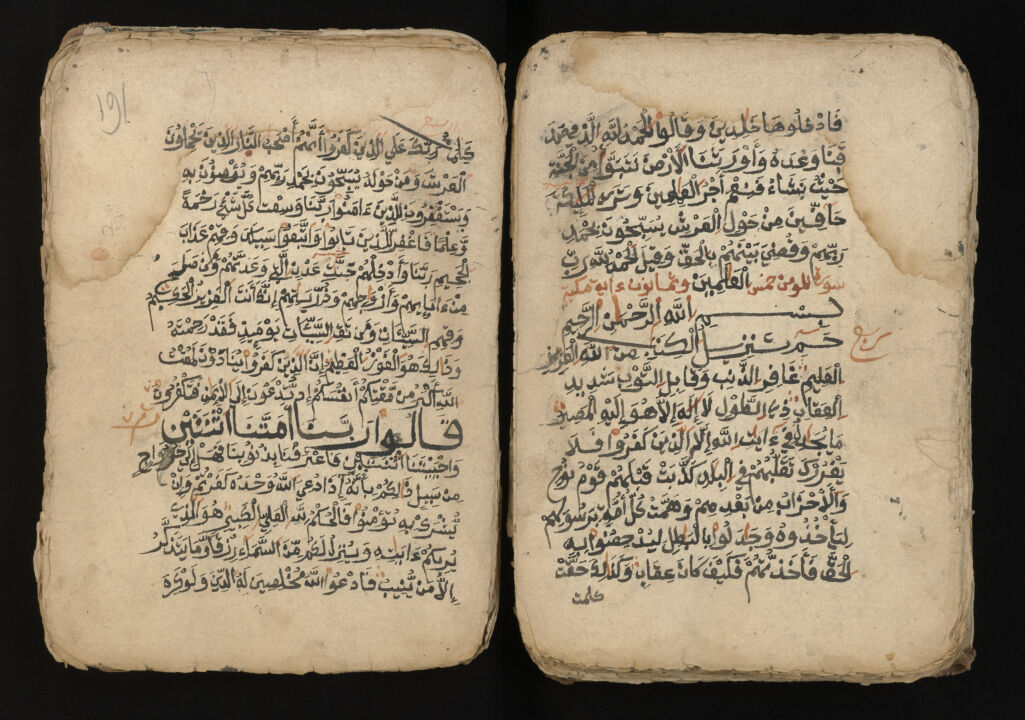 فَادْخُلُوهَا خَلِدِينَ وَقَالُوا الْحَمْدُ لِلَّهِ الَّذِى صَدَ
قَنَا وَعْدَهُ وَأَوْرَثَنَا الْأَرْضَ نَتَبَوَّأُ مِنَ الْجَنَّةِ
حَيْثُ نَشَاءُ فَنِعْمَ أَجْرُ الْعَمِلِينَ وَتَرَى الْمَلَئِكَةَ
حَافِّينَ مِنْ حَوْلِ الْعَرْشِ يُسَبِّحُونَ بِحَمْدِ
رَبِّهِمْ وَقُضِيَ بَيْنَهُمْ بِالْحَقِّ وَقِيلَ الْحَمْدُ لِلَّهِ رَبِّ
سورة المومن خمس الْعَلَمِينَ وثمانون ءاية مكية
بِسْمِ اللَّهِ الرَّحْمَنِ الرَّحِيمِ
حم تَنْزِيلُ الْكِتَبِ مِنَ اللَّهِ الْعَزِيزِ
الْعَلِيمِ غَافِرِ الذَّنْبِ وَقَابِلِ التَّوْبِ شَدِيدِ
الْعِقَابِ ذِى الطَّوْلِ لَا إِلَهَ إِلَّا هُوَ إِلَيْهِ الْمَصِيرُ
مَا يُجَدِلُ فِي ءَايَتِ اللَّهِ إِلَّا الَّذِينَ كَفَرُوا فَلَا
يَغْرُرْكَ تَقَلُّبُهُمْ فِي الْبِلَدِ كَذَّبَتْ قَبْلَهُمْ قَوْمُ نُوحٍ
وَالْأَحْزَابُ مِنْ بَعْدِهِمْ وَهَمَّتْ كُلُّ أُمَّةٍ بِرَسُولِهِمْ
لِيَأْخُذُوهُ وَجَدَلُوا بِالْبَطِلِ لِيُدْحِضُوا بِهِ
الْحَقَّ فَأَخَذْتُهُمْ فَكَيْفَ كَانَ عِقَابِ وَكَذَلِكَ حَقَّتْ
كلمت
١٩١
كَلِمَتُ رَبِّكَ عَلَى الَّذِينَ كَفَرُوا أَنَّهُمْ أَصْحَبُ النَّارِ الَّذِينَ يَحْمِلُونَ
الْعَرْشَ وَمَنْ حَوْلَهُ يُسَبِّحُونَ بِحَمْدِ رَبِّهِمْ وَيُؤْمِنُونَ بِهِ
وَيَسْتَغْفِرُونَ لِلَّذِينَ ءَامَنُوا رَبَّنَا وَسِعْتَ كُلَّ شَيْءٍ رَحْمَةً
وَعِلْمًا فَاغْفِرْ لِلَّذِينَ تَابُوا وَاتَّبَعُوا سَبِيلَكَ وَقِهِمْ عَذَابَ
الْجَحِيمِ رَبَّنَا وَأَدْخِلْهُمْ جَنَّتِ عَدْنٍ الَّتِي وَعَدْتَهُمْ وَمَنْ صَلَحَ
مِنْ ءَابَائِهِمْ وَأَزْوَجِهِمْ وَذُرِّيَّتِهِمْ إِنَّكَ أَنْتَ الْعَزِيزُ الْحَكِيمُ
وَقِهِمُ السَّيِّئَاتِ وَمَنْ تَقِ السَّيِّئَاتِ يَوْمَئِذٍ فَقَدْ رَحِمْتَهُ
وَذَالِكَ هُوَ الْفَوْزُ الْعَظِيمُ إِنَّ الَّذِينَ كَفَرُوا يُنَادَوْنَ لَمَقْتُ
اللَّهِ أَكْبَرُ مِنْ مَقْتِكُمْ أَنْفُسَكُمْ إِذْ تُدْعَوْنَ إِلَى الْإِيمَنِ فَتَكْفُرُونَ
قَالُوا رَبَّنَا أَمَتَّنَا اثْنَتَيْنِ
وَأَحْيَيْتَنَا اثْنَتَيْنِ فَاعْتَرَفْنَا بِذُنُوبِنَا فَهَلْ إِلَى خُرُوجٍ
مِنْ سَبِيلٍ ذَالِكُمْ بِأَنَّهُ إِذَا دُعِيَ اللَّهُ وَحْدَهُ كَفَرْتُمْ وَإِنْ
يُشْرَكْ بِهِ تُؤْمِنُوا فَالْحُكْمُ لِلَّهِ الْعَلِيِّ الْكَبِيرِ هُوَ الَّذِي
يُرِيكُمْ ءَايَتِهِ وَيُنَزِّلُ لَكُمْ مِنَ السَّمَاءِ رِزْقًا وَمَا يَتَذَكَّرُ
إِلَّا مَنْ يُنِيبُ فَادْعُوا اللَّهَ مُخْلِصِينَ لَهُ الدِّينَ وَلَوْ كَرِهَ